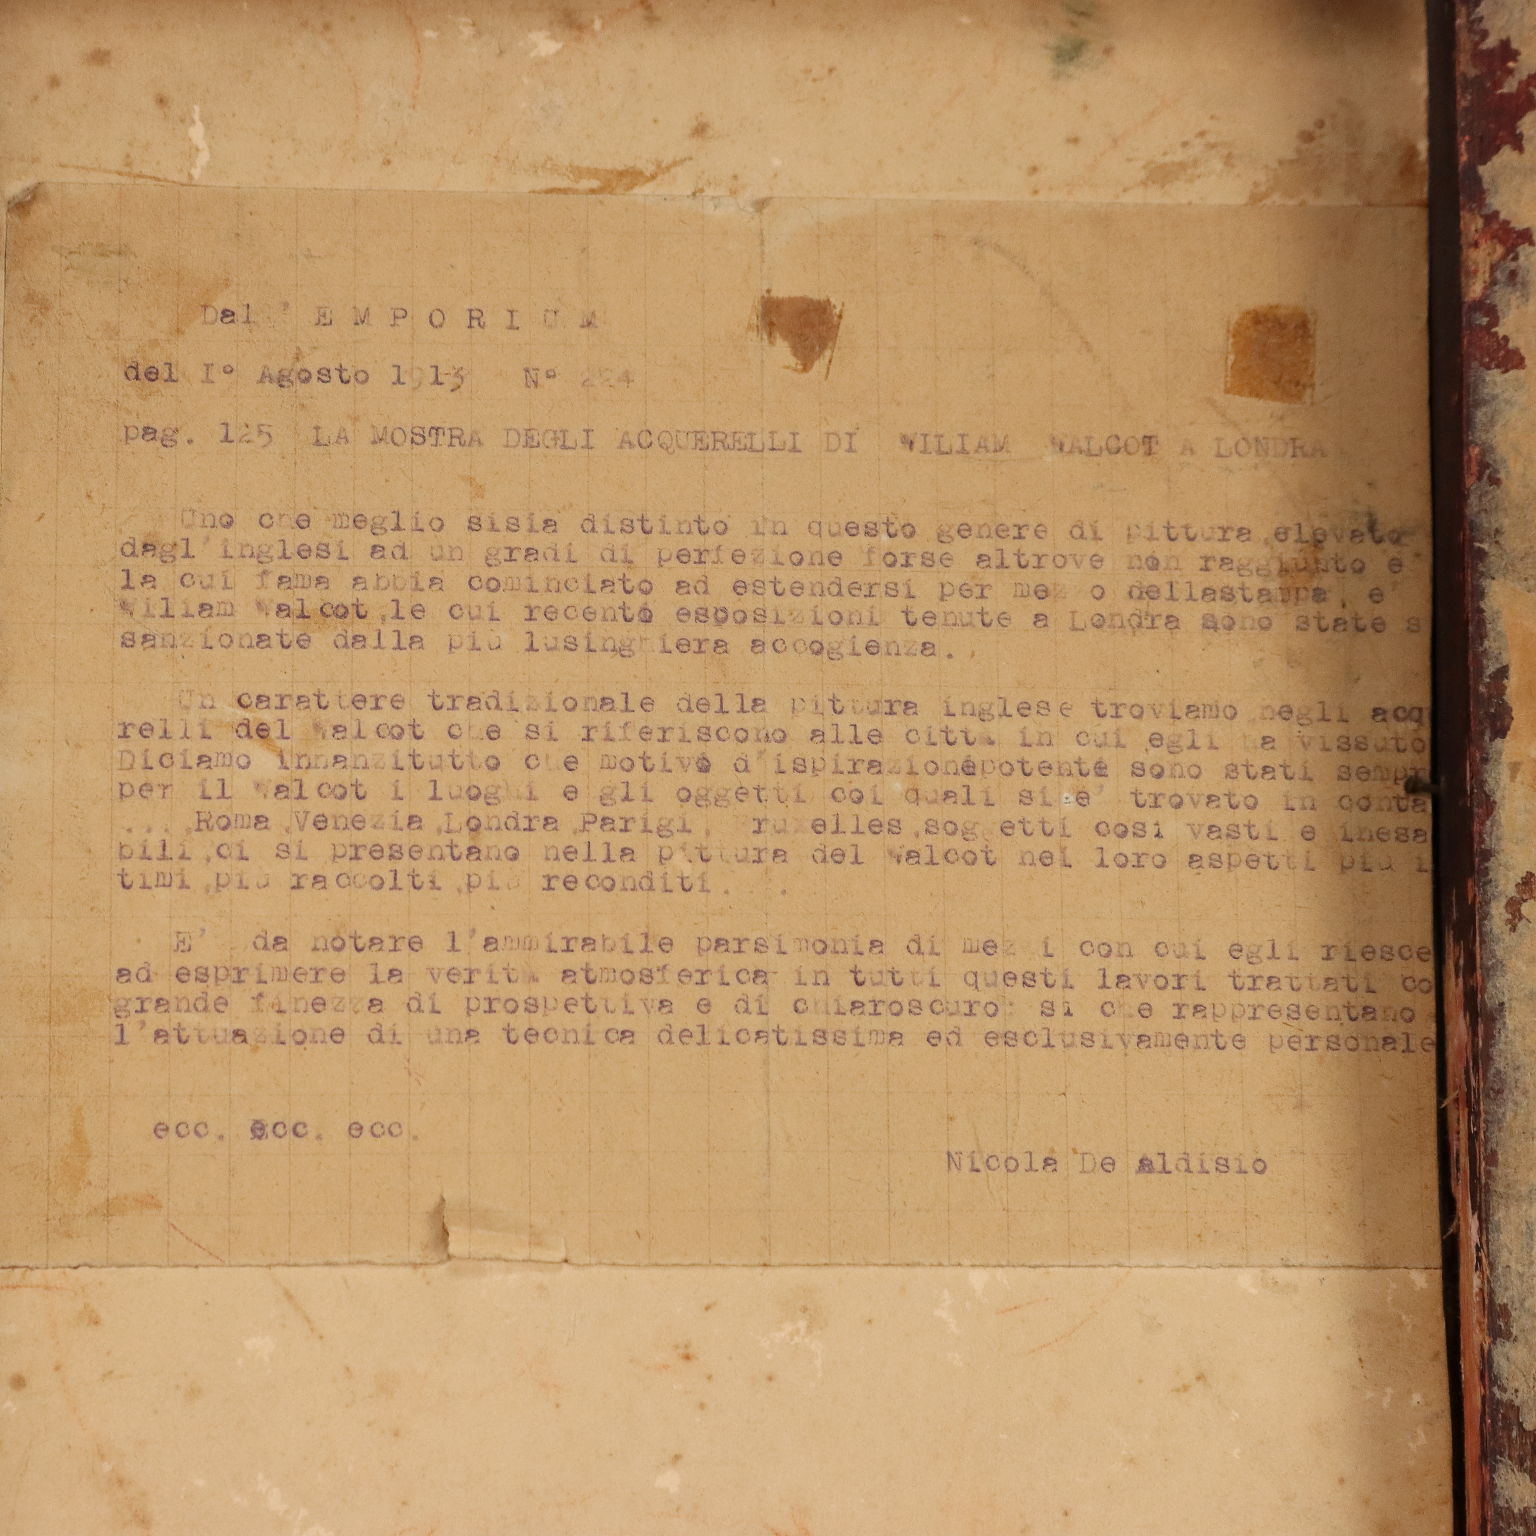 Dal' E M P O R I U M
del I° Agosto 1913 N° 224
pag. 125 LA MOSTRA DEGLI ACQUERELLI DI WILIAM WALCOT A LONDRA
Uno che meglio sisia distinto in questo genere di pittura,elevato
dagl'inglesi ad un gradi di perfezione forse altrove non raggiunto e
la cui fama abbia cominciato ad estendersi per mezzo dellastampa, e'
Wiliam Walcot,le cui recente esposizioni tenute a Londra sono state s
sanzionate dalla più lusinghiera accogienza.
Un carattere tradizionale della pittura inglese troviamo negli acq
relli del Walcot che si riferiscono alle città in cui egli ha vissuto
Diciamo innanzitutto che motivo d'ispirazione potente sono stati sempr
per il Walcot i luoghi e gli oggetti coi quali si e' trovato in conta
....Roma,Venezia,Londra,Parigi, Bruxelles,soggetti cosi vasti e inesa
bili,ci si presentano nella pittura del Walcot nei loro aspetti più i
timi,più raccolti,più reconditi. . .
E' da notare l'ammirabile parsimonia di mezzi con cui egli riesce
ad esprimere la verità atmosferica in tutti questi lavori trattati co
grande finezza di prospettiva e di chiaroscuro: si che rappresentano
l'attuazione di una tecnica delicatissima ed esclusivamente personale
ecc. ecc. ecc.
Nicola De Aldisio